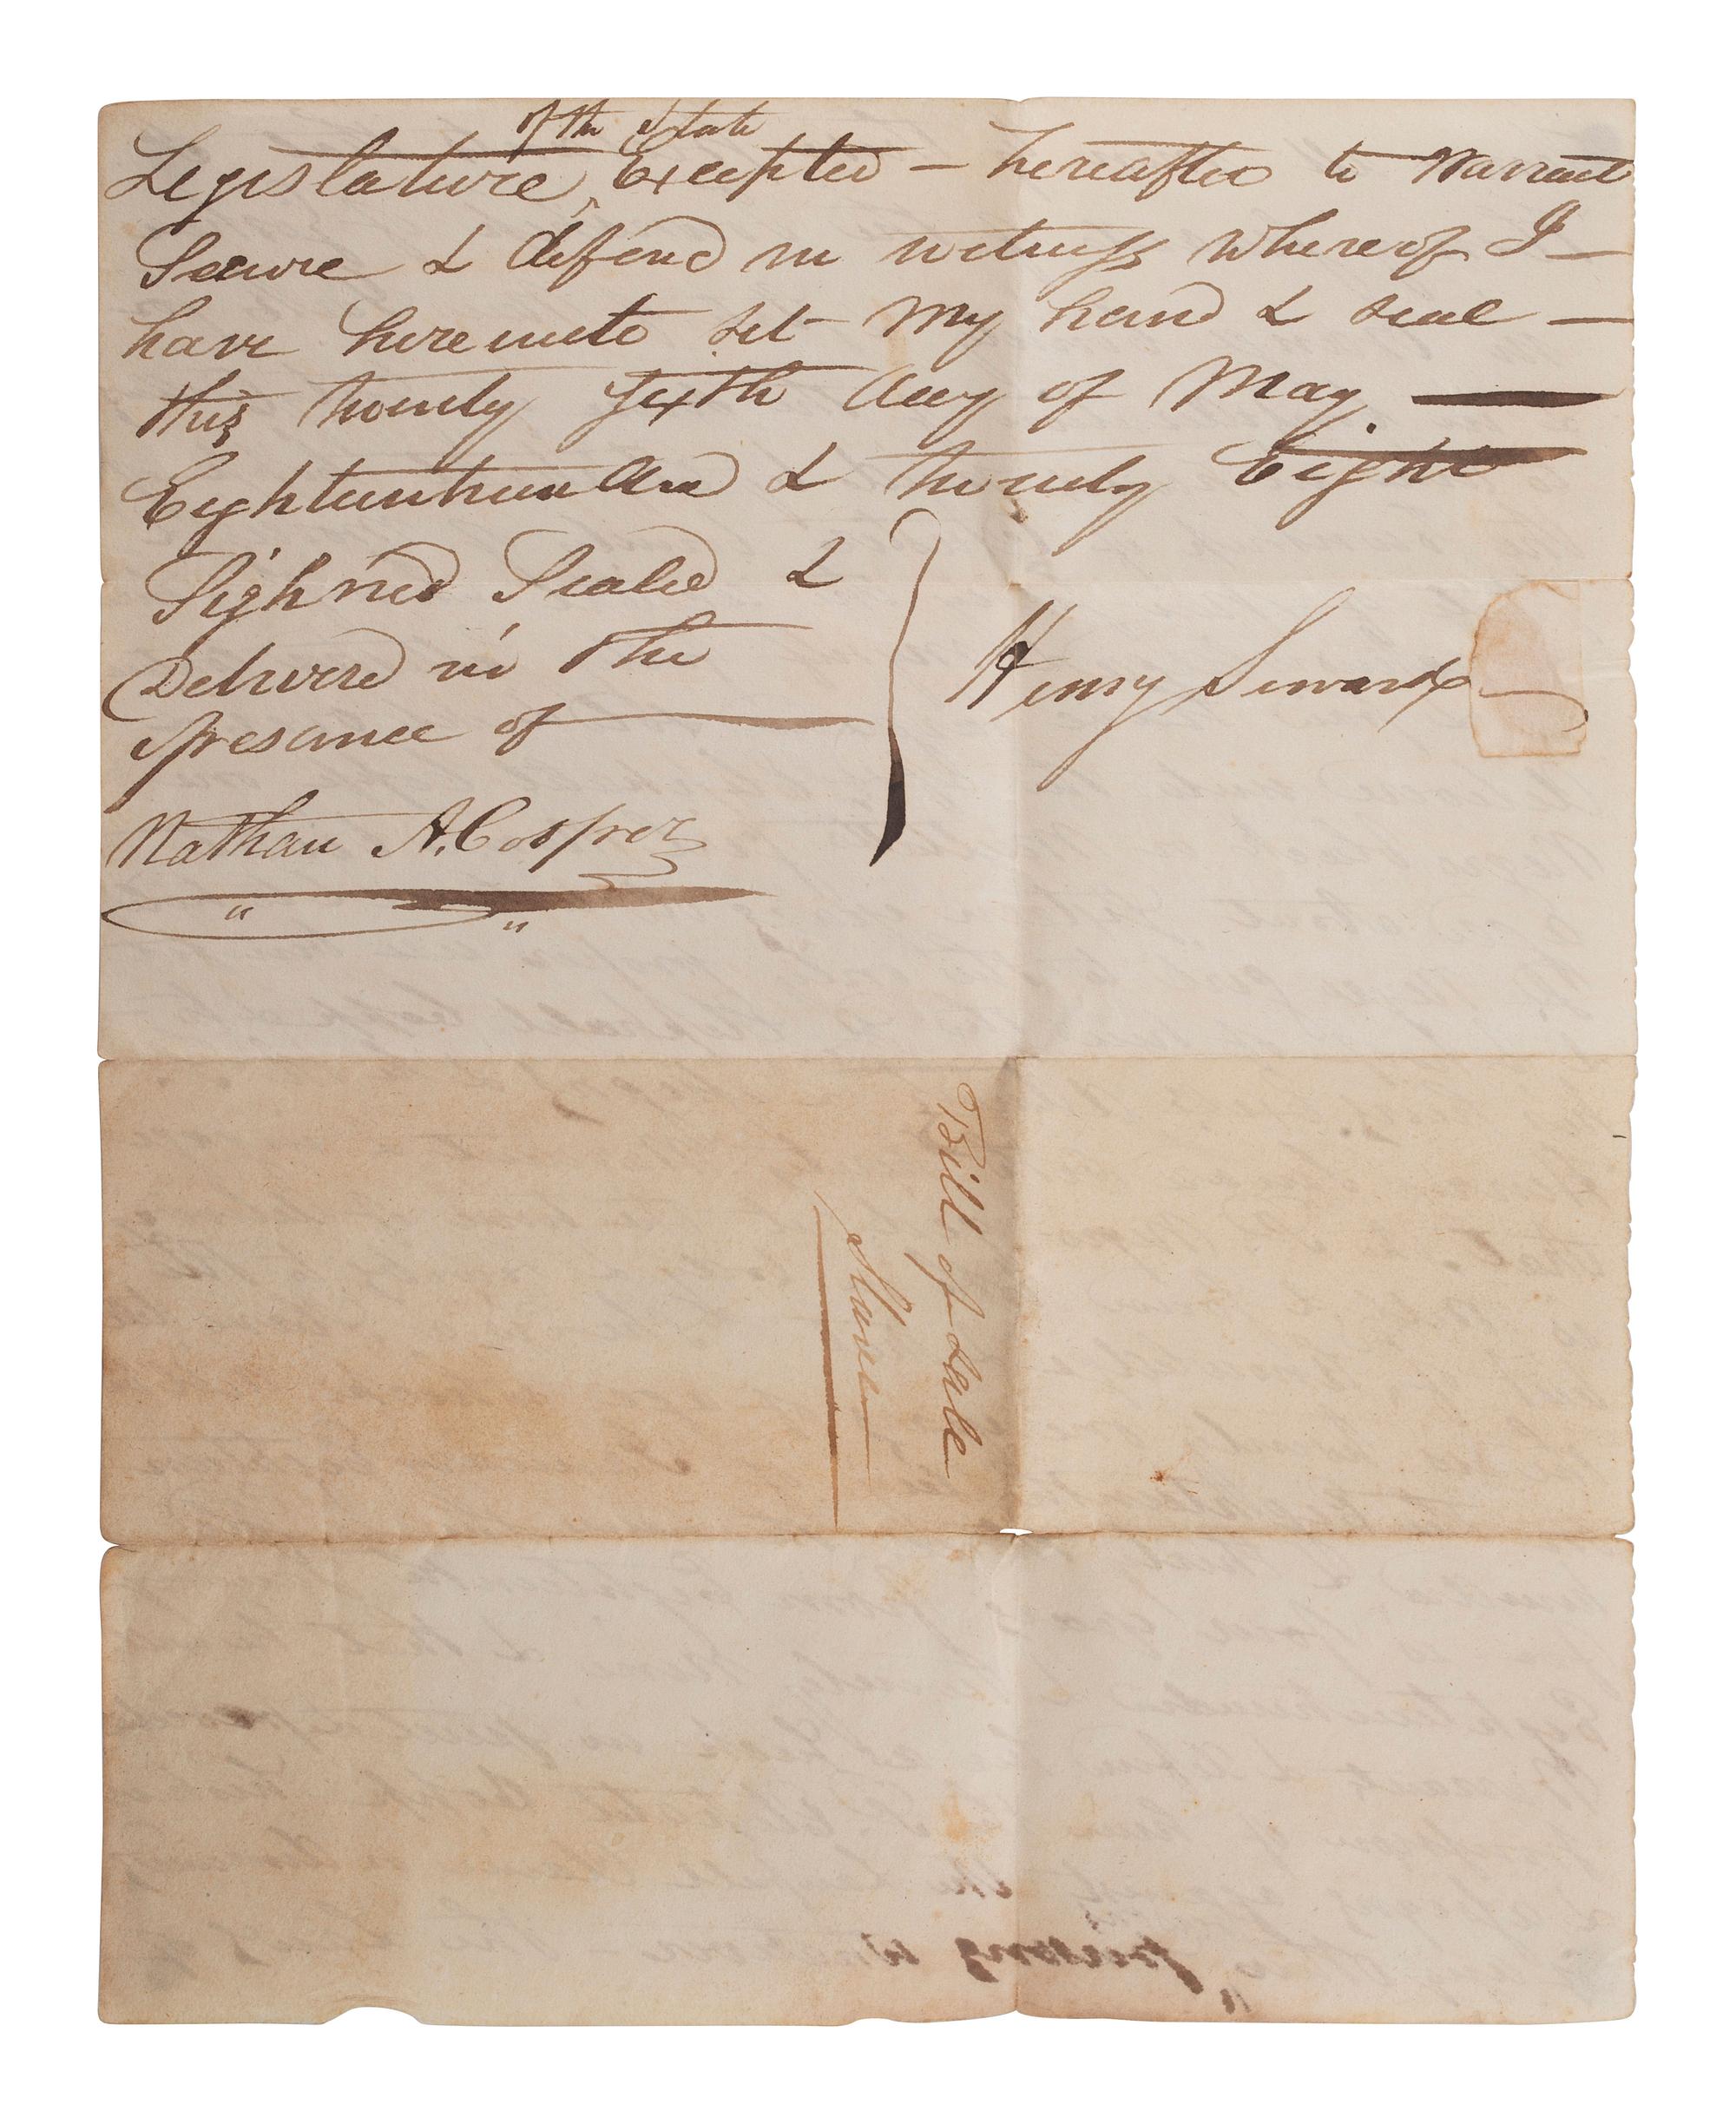 of the State
Legislature, Excepted — hereafter to Warrant
Secure & defend in witness whereof I —
have hereunto set my hand & seal —
this twenty sixth day of May
Eighteenhundred & twenty Eight
Sighned Sealed &
Delivered in the
presance of
Henry Seward
Nathan A. Cosper
Bill of Sale
Slaves